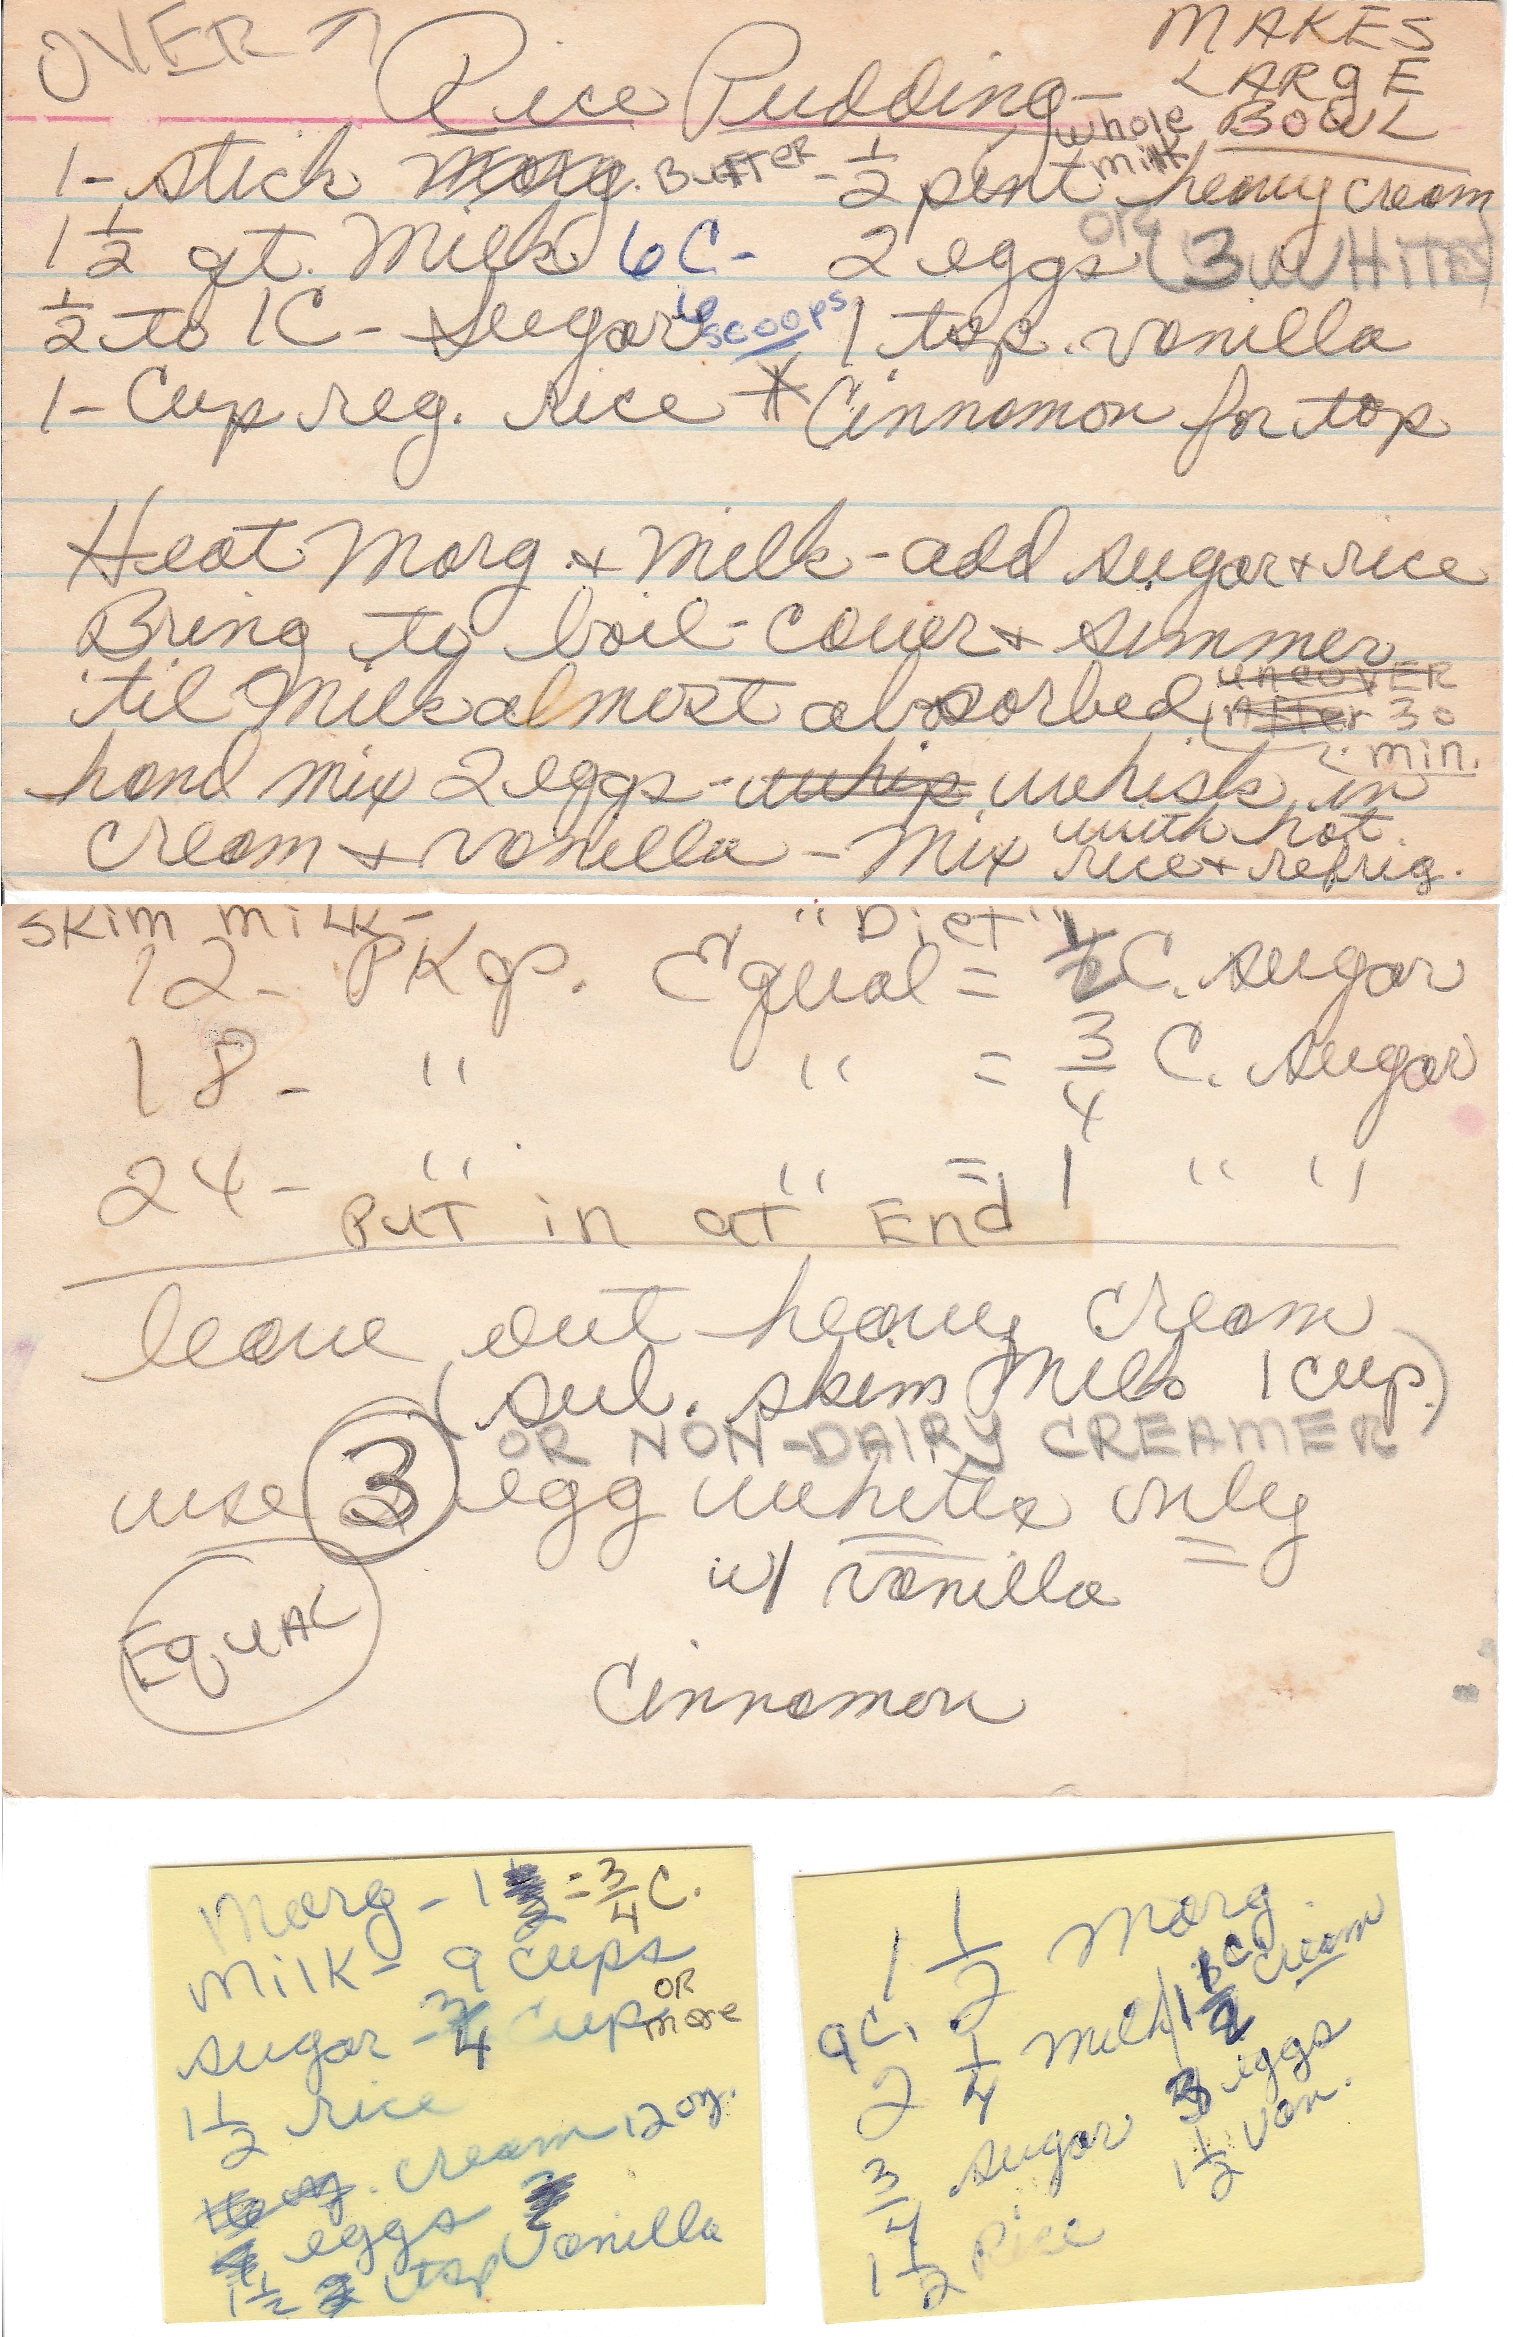 OVER
Rice Pudding - MAKES
LARGE
BOWL
1 - stick marg. BUTTER - 1/2 pint heavy cream
whole
milk
1 1/2 qt. Milk 6 C - 2 eggs OR (3 WHITES)
1/2 to 1 C - sugar 6 scoops 1 tsp. vanilla
1 - Cup reg. rice * Cinnamon for top
Heat Marg + Milk - add sugar + rice
Bring to boil - cover + simmer
'til Milk almost absorbed
uncover
after 30
min.
hand mix 2 eggs - whip whisk in
cream + vanilla - Mix with hot
rice + refrig.
Skim milk - "Diet"
12 - PKgs. Equal = 1/2 C. sugar
18 - " " = 3/4 C. sugar
24 - " " = 1 " "
PUT in at End
leave out heavy cream
(sub. skim Milk 1 cup)
OR NON-DAIRY CREAMER
use 3 egg whites only
w/ vanilla
EQUAL
Cinnamon
Marg - 1 1/2 = 3/4 C.
Milk - 9 cups
sugar - 3/4 cup OR more
1 1/2 rice
cream 12 oz.
eggs
1 1/2 tsp Vanilla
1 1/2 Marg.
9 C. 2 1/4 Milk
1 1/2 C cream
3/4 sugar 3 eggs
1 1/2 Rice 1 1/2 Van.